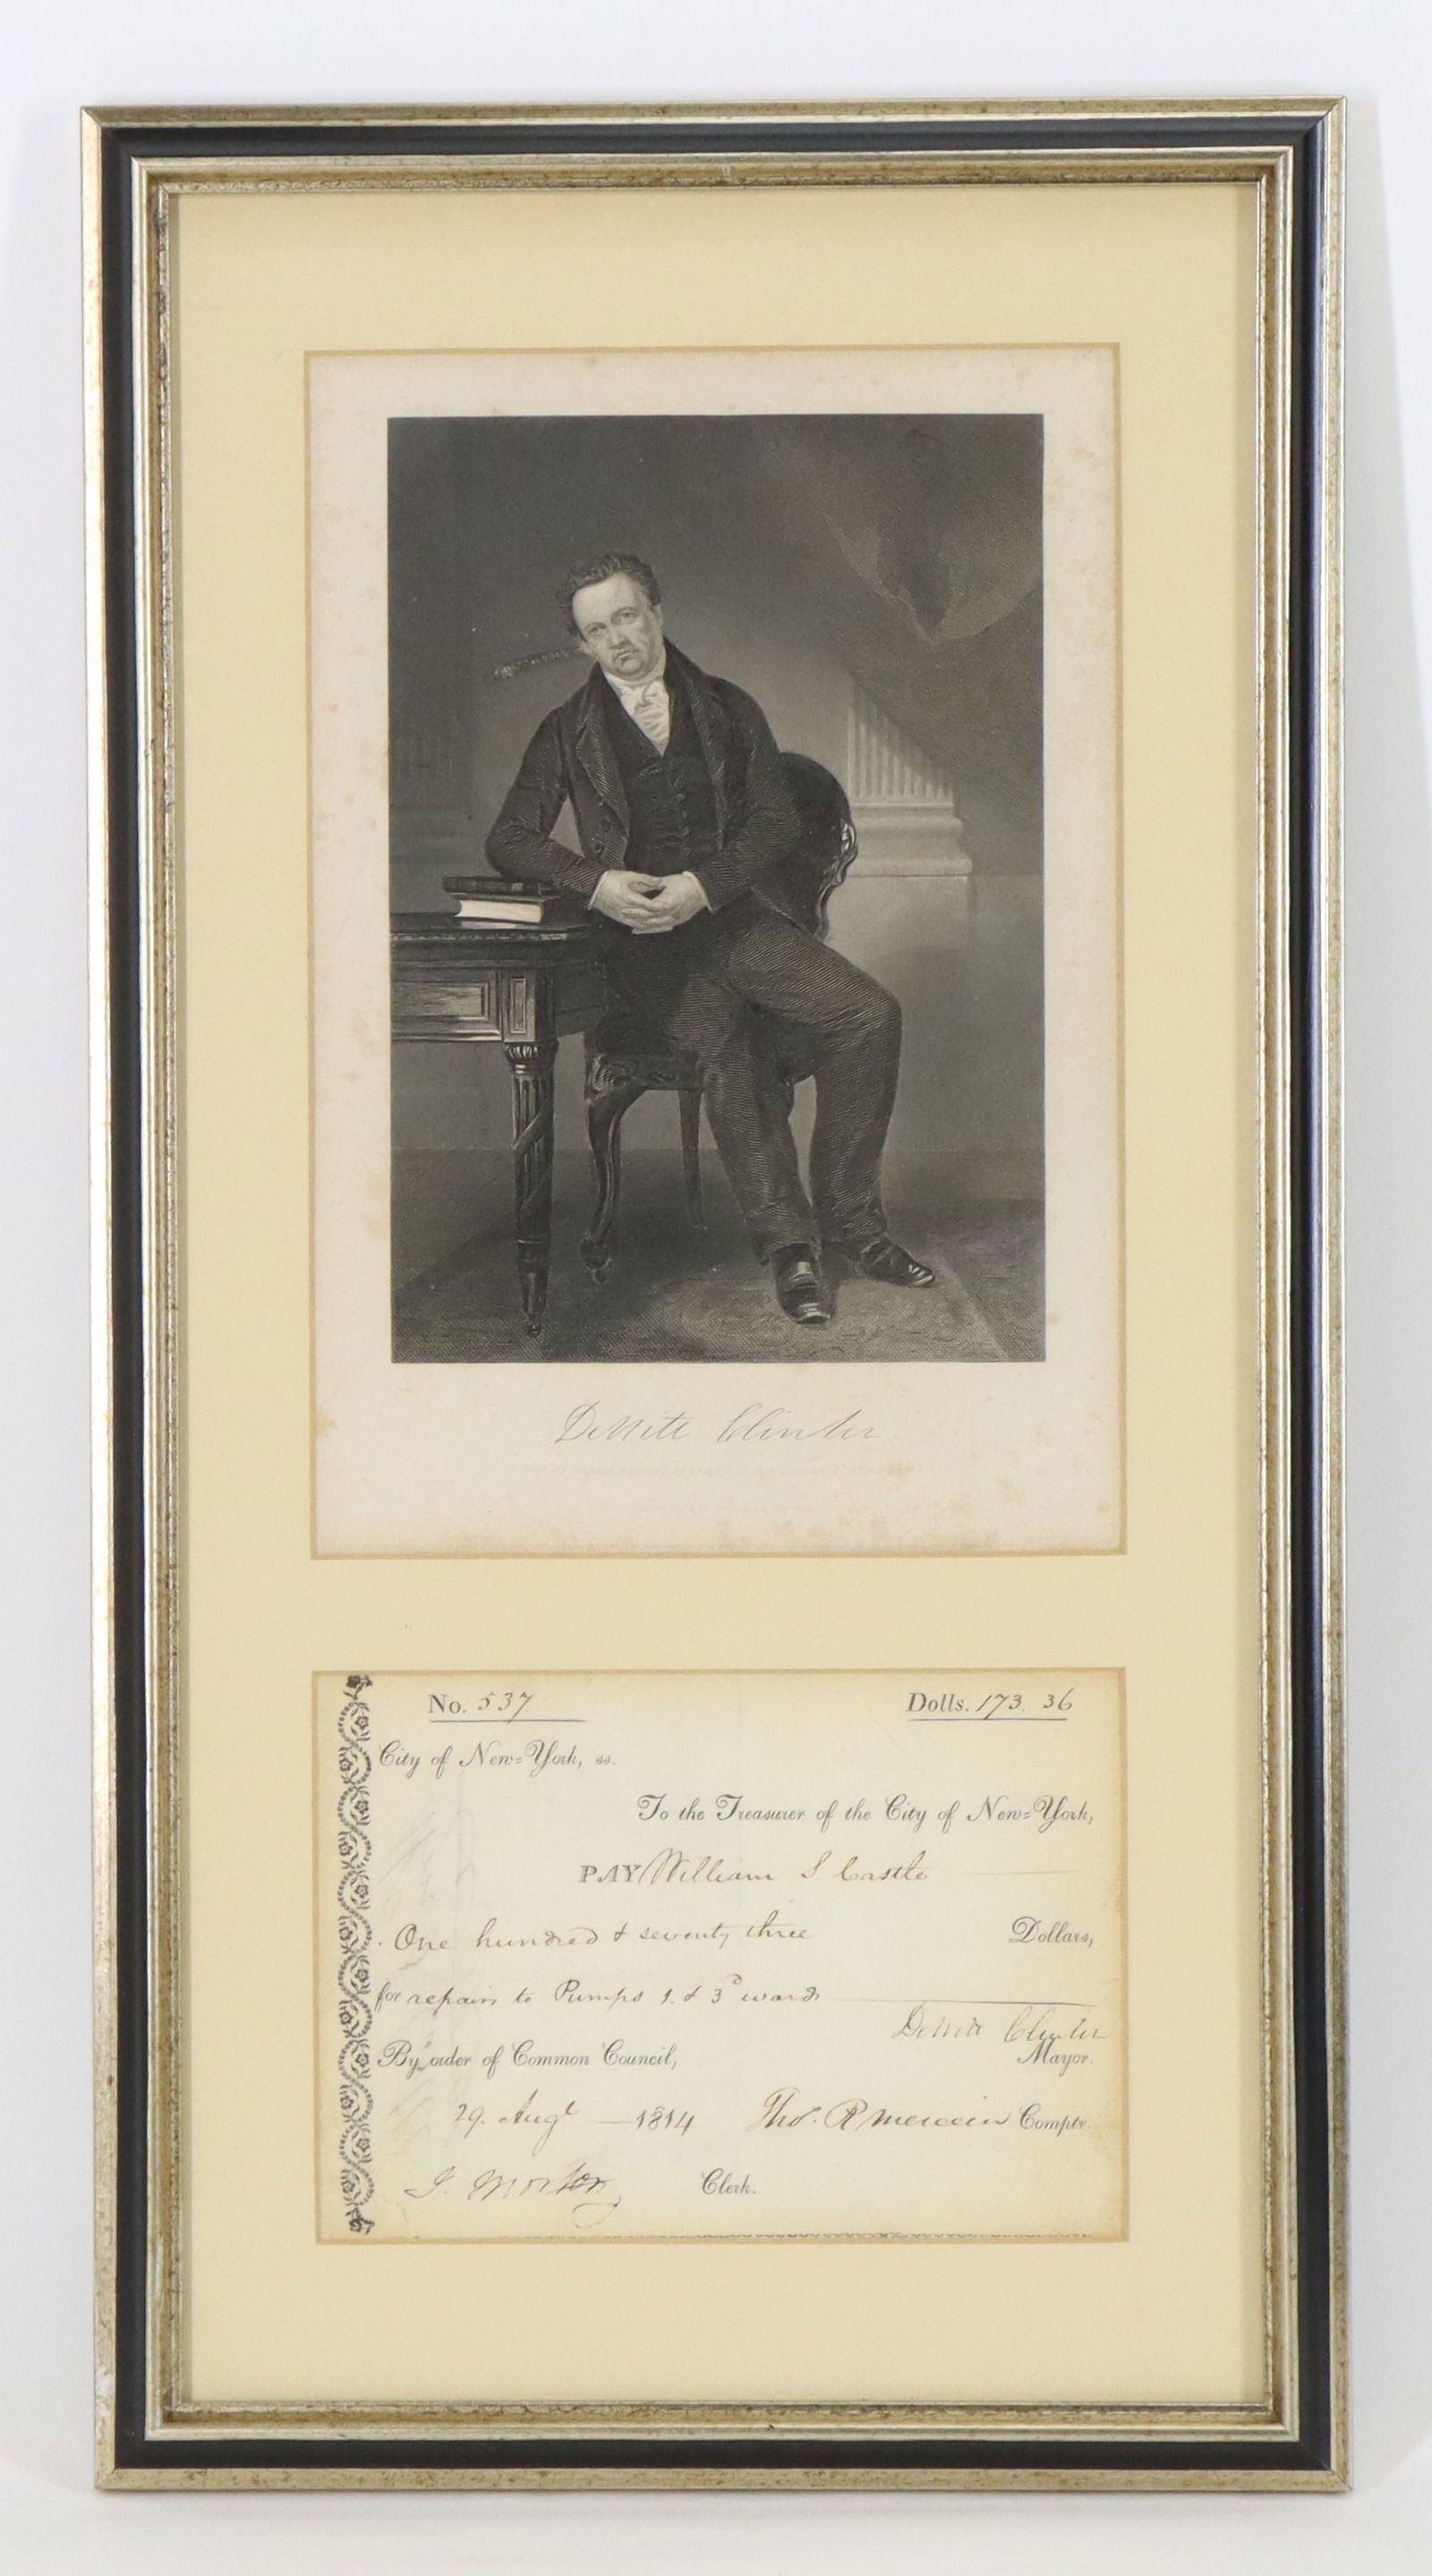 DeWitt Clinton
No. 537 Dolls. 173. 36
City of New=York, ss.
To the Treasurer of the City of New=York,
PAY William S Castle
One hundred & seventy three Dollars,
for repairs to Pumps 1. & 3d wards
DeWitt Clinton
By order of Common Council, Mayor.
29. Augt 1814 Thos. R Mercein Comptr.
J. Morton Clerk.